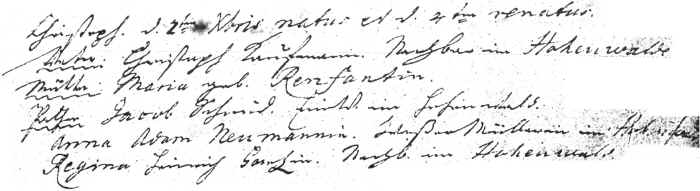 Christoph. d. 2ten Xbris natus et d. 4ten renatus.
Vater Christoph Kaufmann. Nachbar in Hohenwalde
Mutter Maria geb. Renfantin.
Pathen Jacob Schmid. in Hohenwald.
Anna Adam Neumannin. Müllerin in
Regina Heinrich. Nachb. in Hohenwald